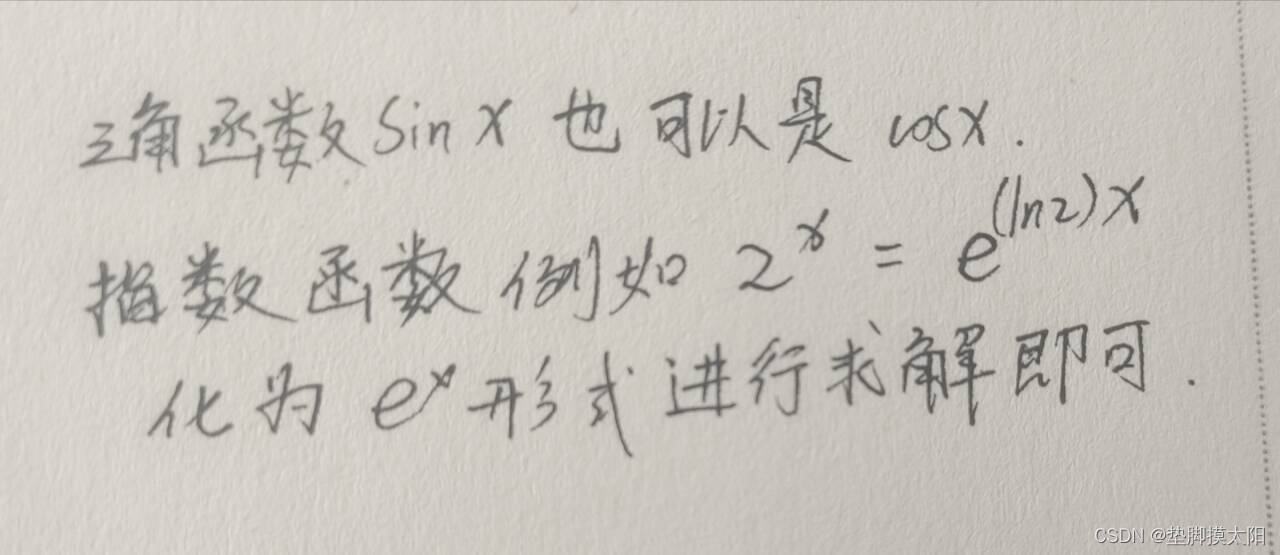 三角函数sin x 也可以是 cosx.
指数函数 例如 2^x = e^{(ln2)x}
化为 e^x 形式进行求解即可.
CSDN @垫脚摸太阳